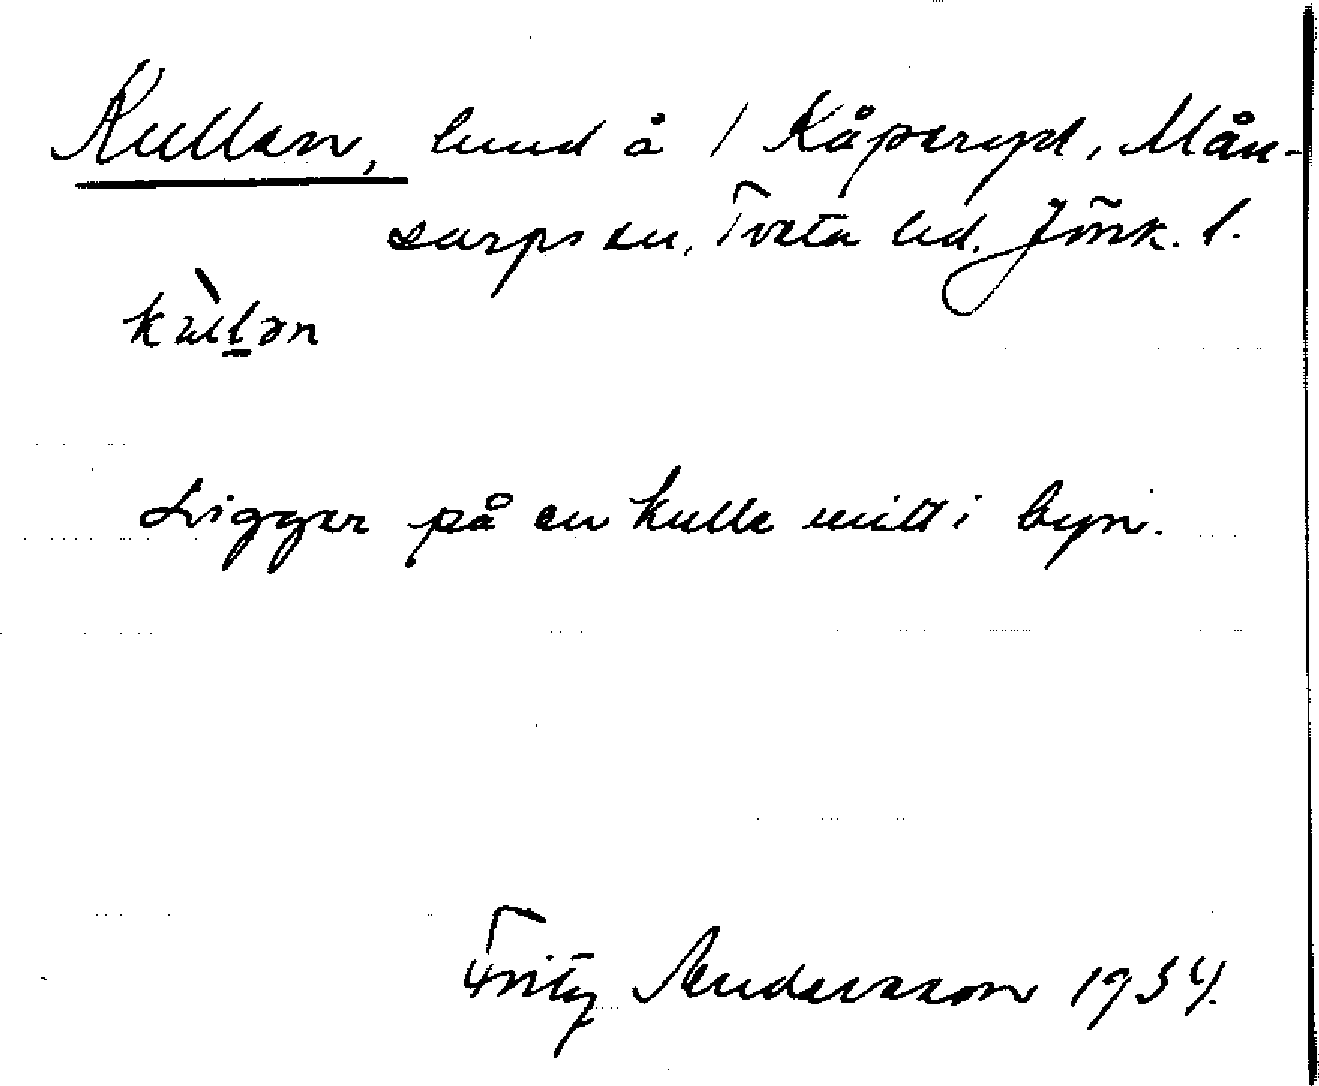 Kullen, lund å 1 Kåperyd, Mån-
sarps sn, Tveta hd. Jönk. l.
kùl̠ən
Ligger på en kulle mitt i byn.
Fritz Andersson 1934.